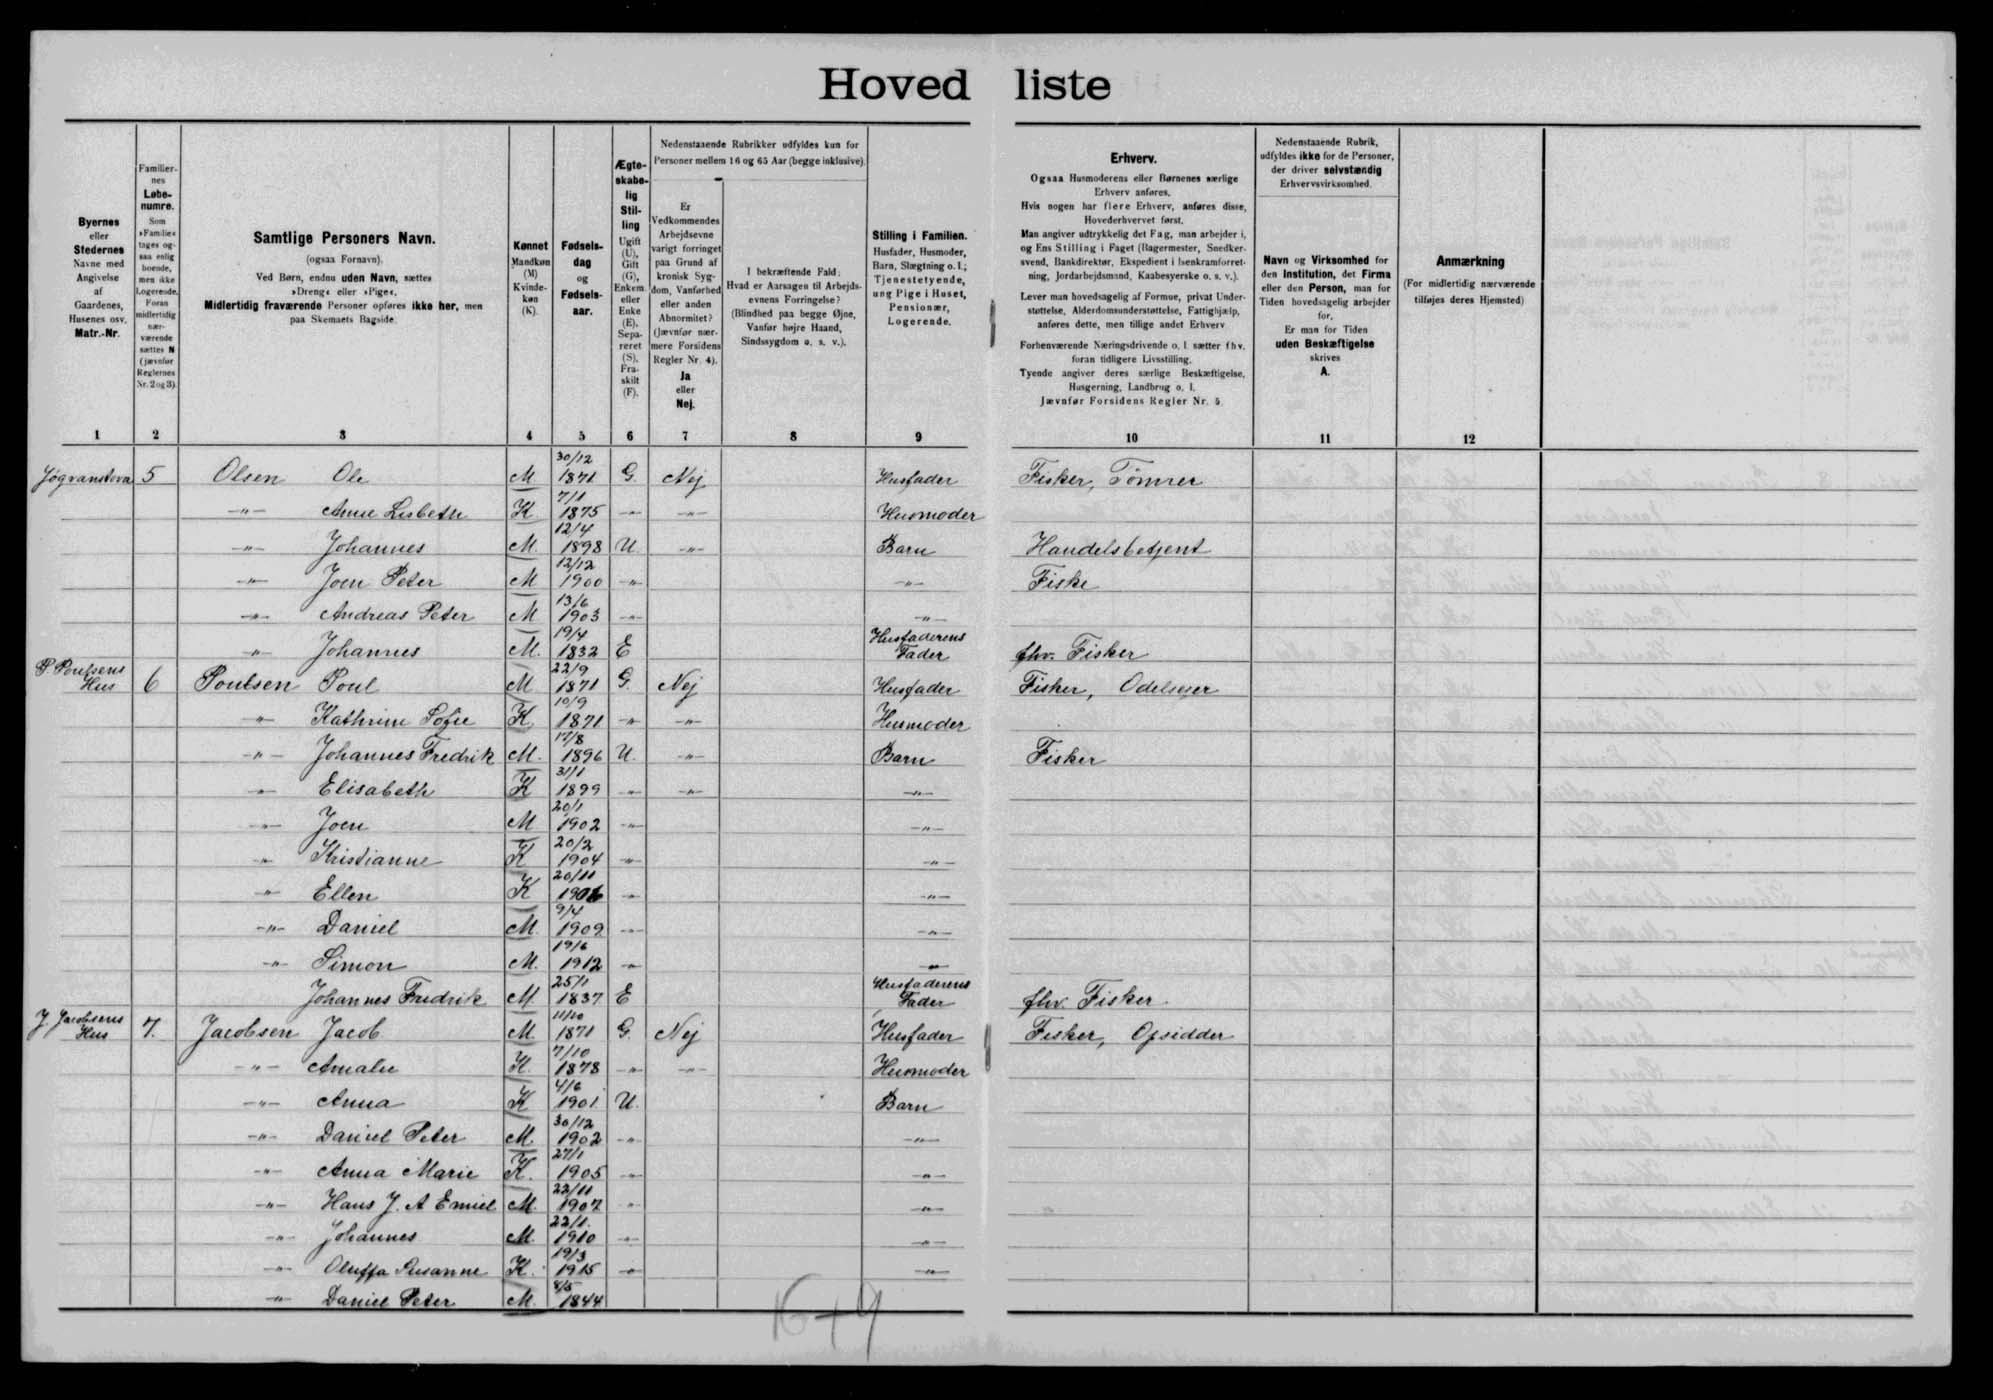 Hovedliste
Byernes
eller
Stedernes
Navne med
Angivelse
af
Gaardenes,
Husenes osv.
Matr.-Nr.
1
Familier-
nes
Løbe-
numre.
Som
»Familie«
tages og-
saa enlig
boende,
men ikke
Logerende.
Foran
midlertidig
nær-
værende
sættes N
(jævnfør
Reglernes
Nr. 2 og 3).
2
Samtlige Personers Navn.
(ogsaa Fornavn).
Ved Børn, endnu uden Navn, sættes
»Dreng« eller »Pige«.
Midlertidig fraværende Personer opføres ikke her, men
paa Skemaets Bagside.
3
Kønnet
Mandkøn
(M)
Kvinde-
køn
(K).
4
Fødsels-
dag
og
Fødsels-
aar.
5
Ægte-
skabe-
lig
Stil-
ling
Ugift
(U),
Gift
(G),
Enkem.
eller
Enke
(E),
Sepa-
reret
(S),
Fra-
skilt
(F).
6
Nedenstaaende Rubrikker udfyldes kun for
Personer mellem 16 og 65 Aar (begge inklusive).
Er
Vedkommendes
Arbejdsevne
varigt forringet
paa Grund af
kronisk Syg-
dom, Vanførhed
eller anden
Abnormitet?
(Jævnfør nær-
mere Forsidens
Regler Nr. 4).
Ja
eller
Nej.
7
I bekræftende Fald:
Hvad er Aarsagen til Arbejds-
evnens Forringelse?
(Blindhed paa begge Øjne,
Vanfør højre Haand,
Sindssygdom o. s. v.).
8
Stilling i Familien.
Husfader, Husmoder,
Barn, Slægtning o. l.;
Tjenestetyende,
ung Pige i Huset,
Pensionær,
Logerende.
9
Erhverv.
Ogsaa Husmoderens eller Børnenes særlige
Erhverv anføres.
Hvis nogen har flere Erhverv, anføres disse,
Hovederhvervet først.
Man angiver udtrykkelig det Fag, man arbejder i,
og Ens Stilling i Faget (Bagermester, Snedker-
svend, Bankdirektør, Ekspedient i Isenkramforret-
ning, Jordarbejdsmand, Kaabesyerske o. s. v.).
Lever man hovedsagelig af Formue, privat Under-
støttelse, Alderdomsunderstøttelse, Fattighjælp,
anføres dette, men tillige andet Erhverv
Forhenværende Næringsdrivende o. l. sætter fhv.
foran tidligere Livsstilling.
Tyende angiver deres særlige Beskæftigelse,
Husgerning, Landbrug o. l.
Jævnfør Forsidens Regler Nr. 5.
10
Nedenstaaende Rubrik,
udfyldes ikke for de Personer,
der driver selvstændig
Erhvervsvirksomhed.
Navn og Virksomhed for
den Institution, det Firma
eller den Person, man for
Tiden hovedsagelig arbejder
for.
Er man for Tiden
uden Beskæftigelse
skrives
A.
11
Anmærkning
(For midlertidig nærværende
tilføjes deres Hjemsted)
12
Jógvanstova 5 Olsen Ole M 30/12 1871 G. Nej Husfader Fisker, Tømrer
-"- Anne Lisbeth K 7/1 1875 -"- -"- Husmoder
-"- Johannes M. 12/4 1898 U. -"- Barn Handelsbetjent
-"- Joen Peter M 12/12 1900 -"- -"- Fiske
-"- Andreas Peter M 13/6 1903 -"- -"-
-"- Johannes M. 19/4 1832 E Husfaderens Fader fhv. Fisker
P. Poulsens Hus 6 Poulsen Poul M 22/9 1871 G. Nej Husfader Fisker, Odelsejer
-"- Kathrine Sofie K 10/9 1871 -"- -"- Husmoder
-"- Johannes Fredrik M. 17/8 1896 U. -"- Barn Fisker
-"- Elisabeth K 31/1 1899 -"- -"- -"-
-"- Joen M 20/1 1902 -"- -"-
-"- Kristianne K 20/2 1904 -"- -"-
-"- Ellen K 20/11 1906 -"- -"-
-"- Daniel M. 9/4 1909 -"- -"-
-"- Simon M. 19/6 1912 -"- -"-
Johannes Fredrik M. 25/1 1837 E Husfaderens Fader fhv. Fisker
J. Jacobsens Hus 7. Jacobsen Jacob M. 11/10 1871 G. Nej Husfader Fisker, Opsidder
-"- Amalie K. 7/10 1878 -"- -"- Husmoder
-"- Anna K 4/6 1901 U. Barn
-"- Daniel Peter M. 30/12 1902 -"- -"-
-"- Anna Marie K. 27/1 1905 -"- -"-
-"- Hans J. A Emiel M. 22/11 1907 -"- -"-
-"- Johannes M. 22/1. 1910 -"- -"-
-"- Oluffa Susanne K. 19/3 1915 -"- -"-
-"- Daniel Peter M. 8/5 1844
16+9